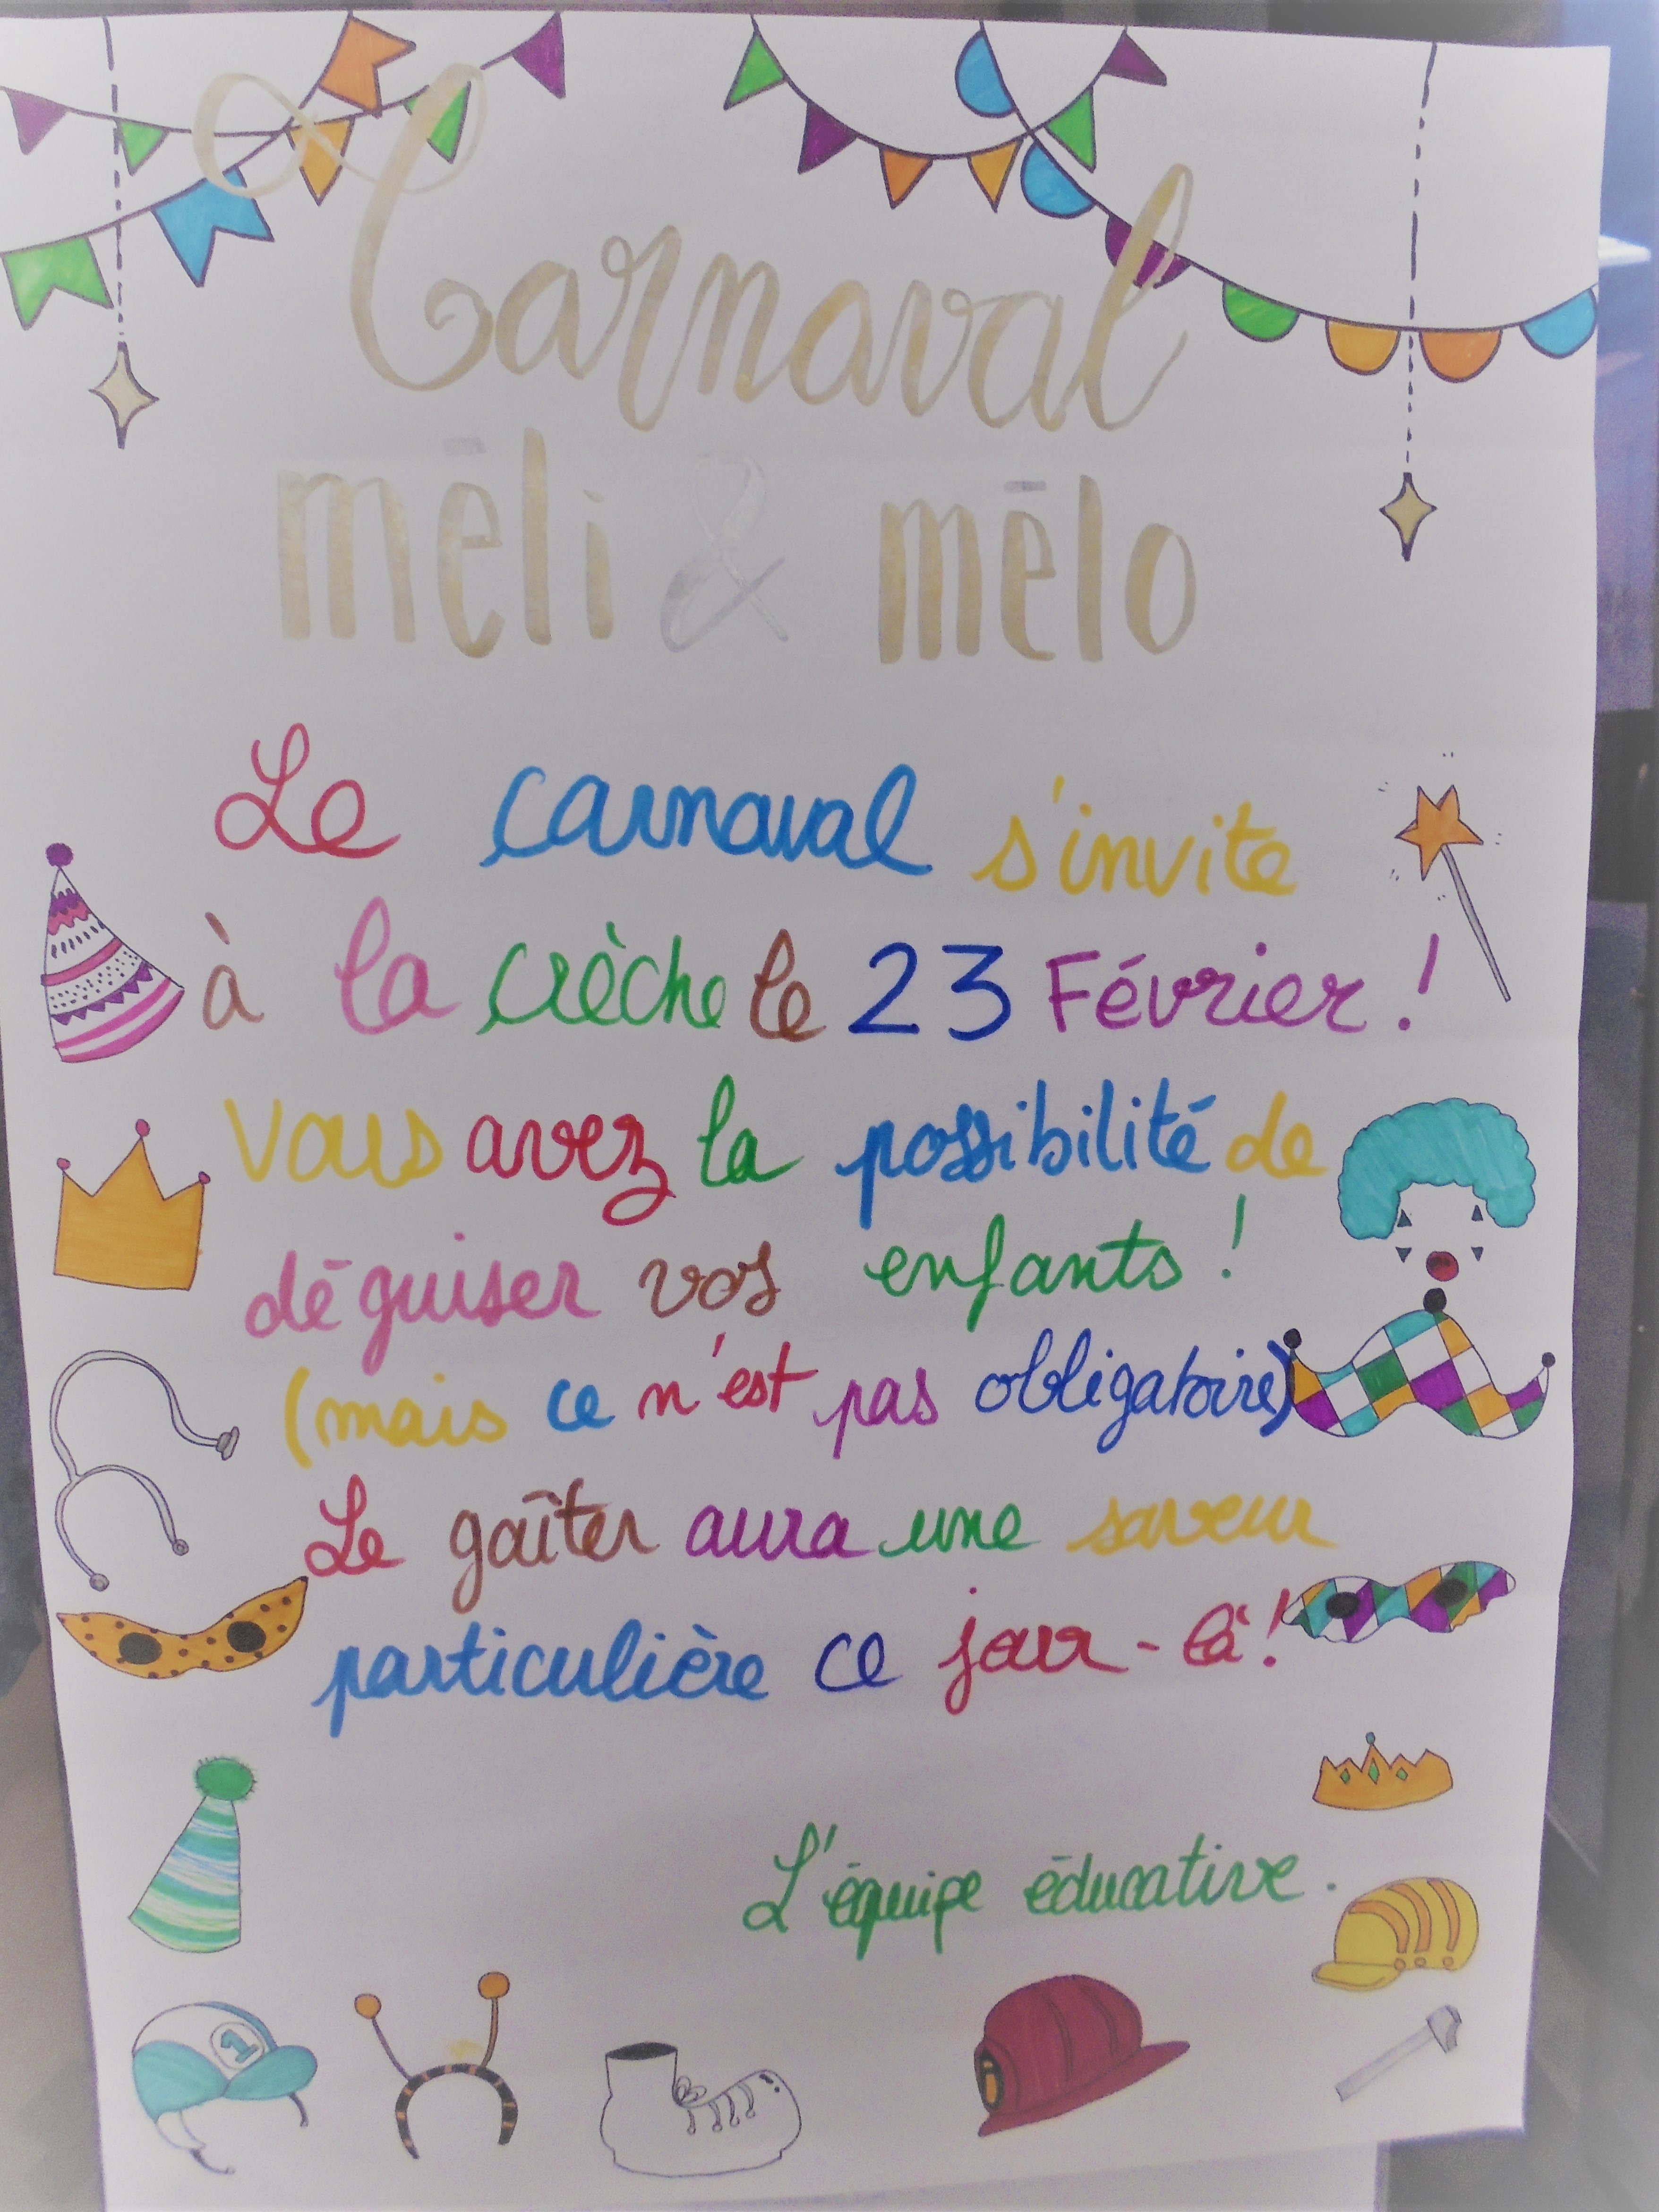 Carnaval
méli & mélo
Le carnaval s'invite
à la crèche le 23 Février !
Vous avez la possibilité de
déguiser vos enfants !
(mais ce n'est pas obligatoire)
Le goûter aura une saveur
particulière ce jour-là !
L'équipe éducative.
1